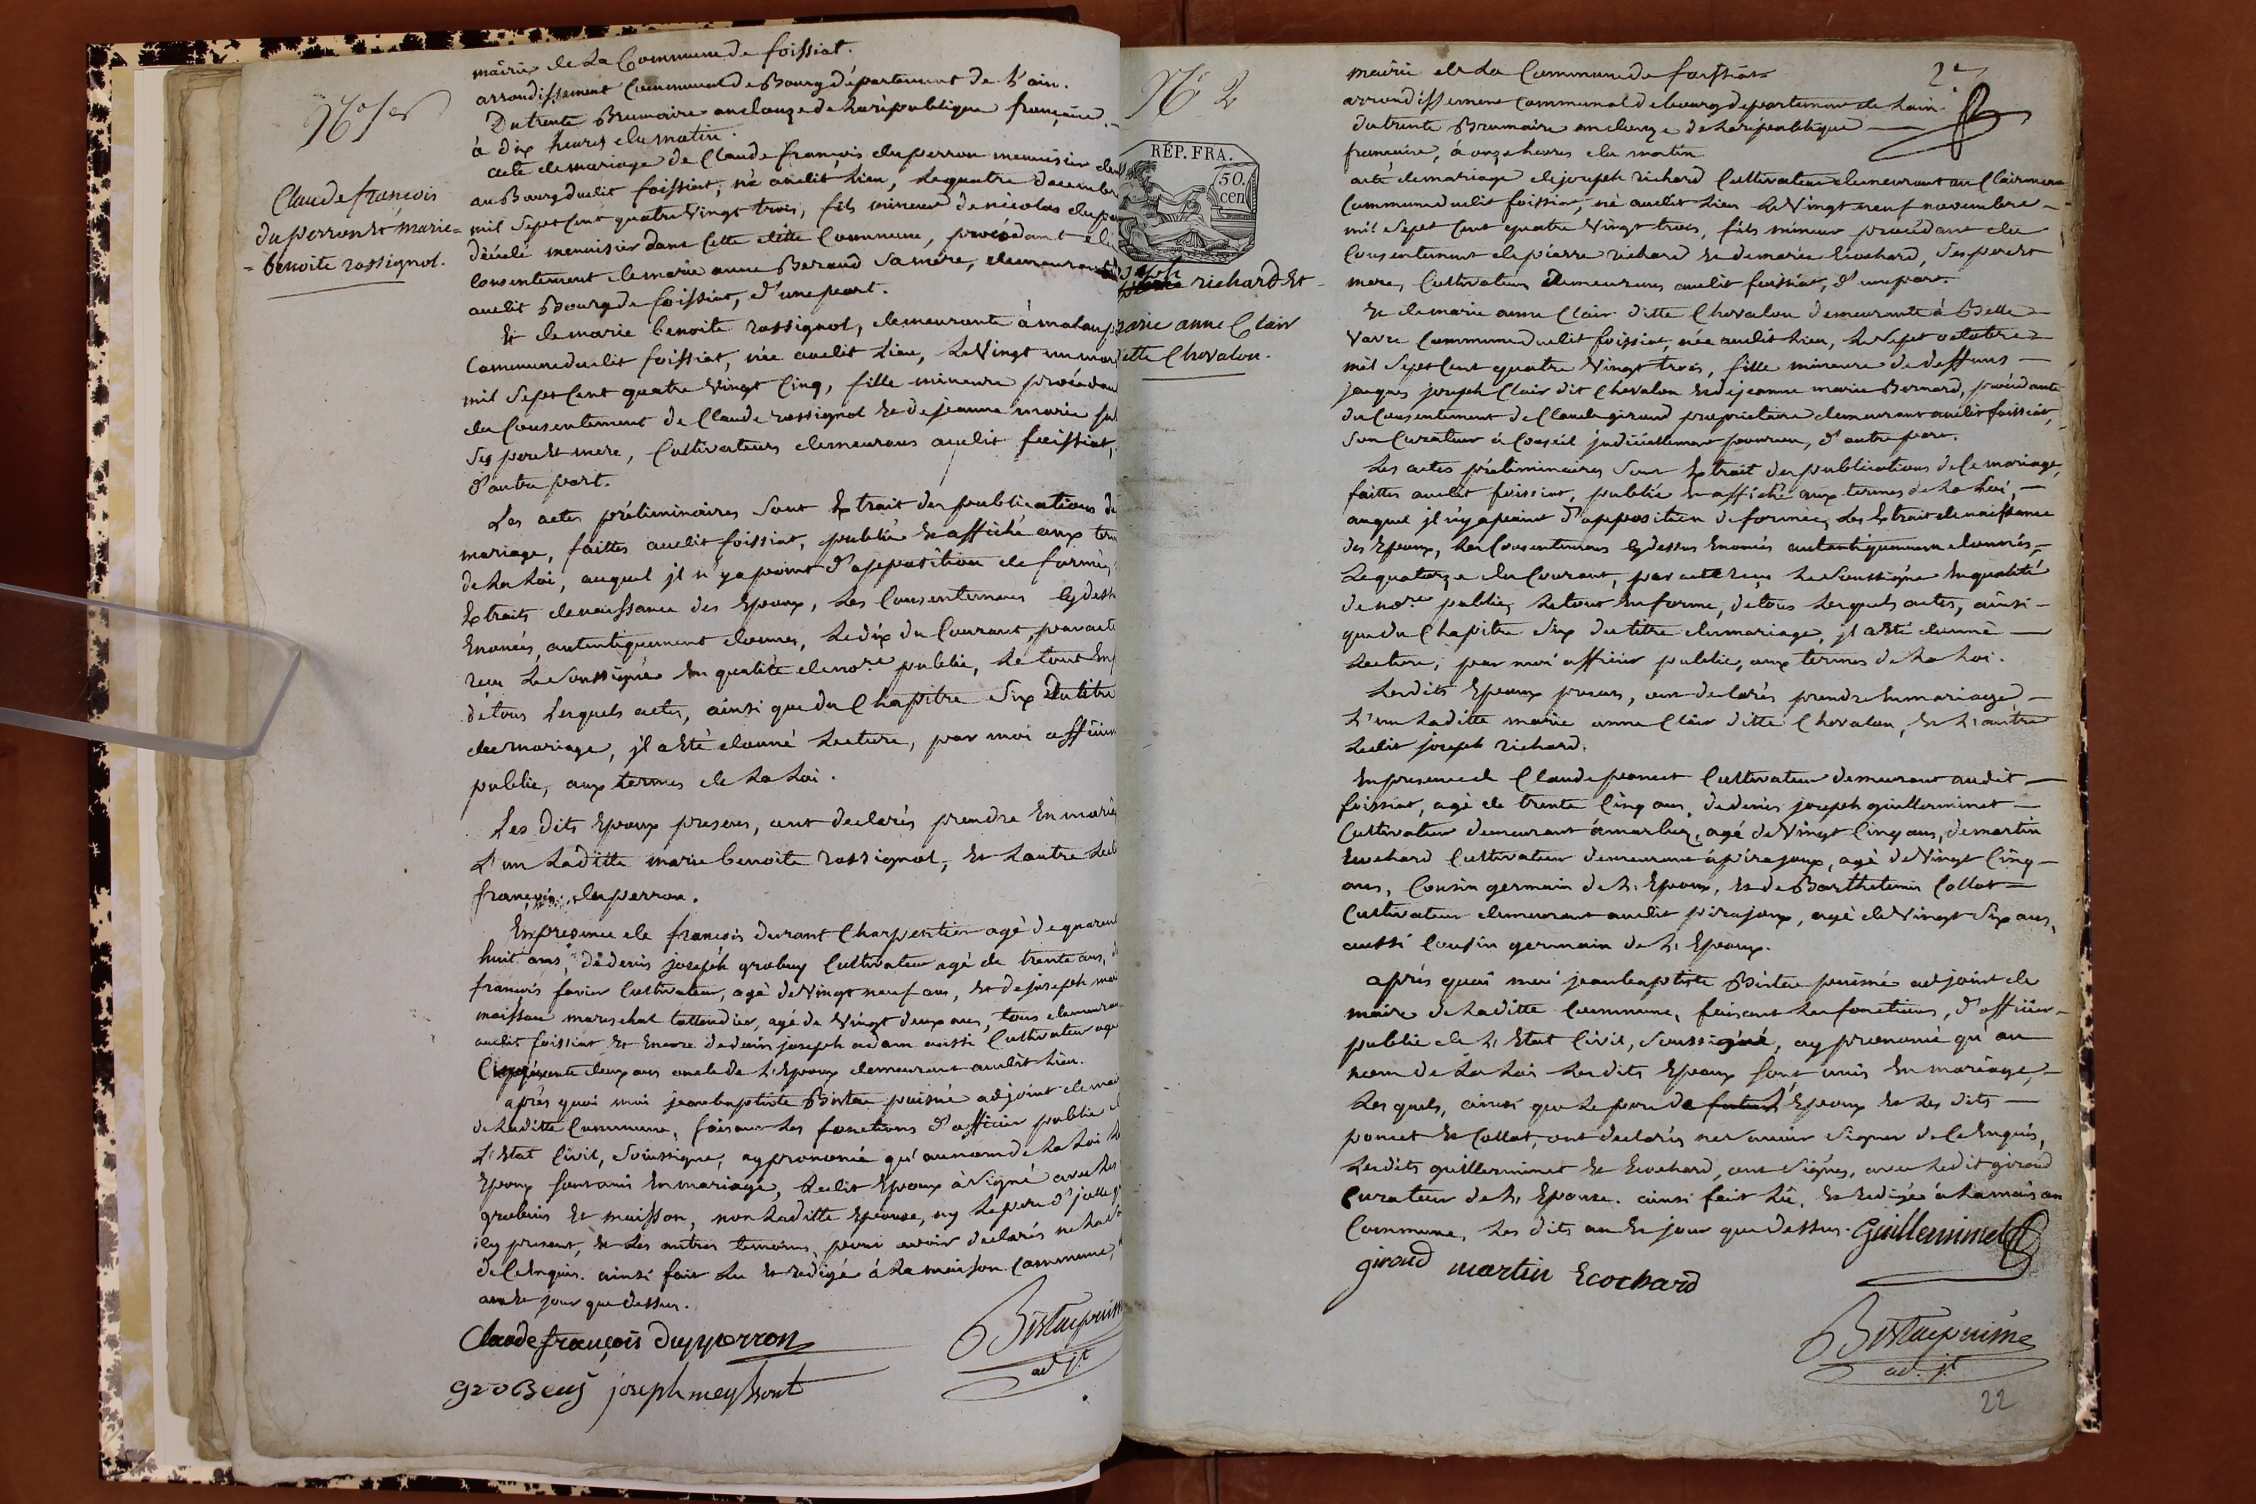 N.º 1.er
Claude francois
duperron et marie=
=benoite rossignol.
mairie de La Commune de foissiat.
arrondissement Communal de Bourg département de L'ain.
Du trente Brumaire an douze de la république française.
à dix heures du matin.
acte de mariage de Claude françois duperron menuisier
au Bourg dudit foissiat, né audit Lieu, Le quatre decembre
mil sept Cent quatre Vingt trois, fils mineur de nicolas
décédé menuisier dans Cette ditte Commune, procédant
Consentement de marie anne Beraud sa mère, demeurant
audit Bourg de foissiat, d'une part.
Et de marie benoite rossignol, demeurante à
Commune dudit foissiat, née audit Lieu, Le Vingt un
mil Sept Cent quatre Vingt Cinq, fille mineure
du Consentement de Claude rossignol et de jeanne marie
Ses pere et mere, Cultivateurs demeurans audit foissiat,
d'autre part.
Les actes préliminaires Sont Extrait des publications
mariage, faittes audit foissiat, publié et affiché aux
de La Loi, auquel jl n'y a point d'opposition de formée,
Extraits de naissance des Epoux, Les Consentemens
Enoncés, autentiquement donnés, Le dix du Courant, par acte
recu Le Soussigné En qualité de no.re public, Le tout
de tous Lesquels actes, ainsi que du Chapitre Six du titre
du mariage, jl a été donné Lecture, par moi officier
public, aux termes de La Loi.
Les dits Epoux presens, ont declarés prendre En
L'un Laditte marie benoite rossignol, et Lautre
françois duperron.
En presence de francois durant Charpentier agé de
huit ans, de denis joseph grobuy Cultivateur agé de trente ans,
françois favier Cultivateur, agé de Vingt neuf ans, et de joseph
maisson mareschal tattendier, agé de Vingt deux ans, tous
audit foissiat et Encore de denis joseph adam aussi Cultivateur
deux ans oncle de L'Epoux demeurant audit Lieu.
après quoi moi jeanbaptiste Bistac puisné adjoint
de Laditte Commune, faisant Les fonctions d'officier public
L'Etat Civil, Soussigné, ay prononcé qu'au nom de La Loi
Epoux sont unis En mariage, Ledit Epoux à Signé avec
grobuis et maisson, non Laditte Epouse, ny Le pere
icy present, et Les autres temoins, pour avoir declarés ne
de Ce Enquis. ainsi fait Lu et redigé à La maison Commune,
an et jour que dessus.
Claude françois Dupperron
groBeuy joseph meyssont
Bistac puisné
ad.jt
N.º 2
RÉP. FRA.
50.
cen
joseph richard et
marie anne Clair
ditte Chevalon.
2e
mairie de La Commune de foissiat
arrondissement Communal de bourg departement de Lain.
du trente Brumaire an douze de La république
francaise, à onze heures du matin
acte de mariage de joseph richard Cultivateur demeurant au
Commune dudit foissiat, né audit Lieu Le Vingt neuf novembre
mil Sept Cent quatre Vingt trois, fils mineur procédant du
Consentement de pierre richard et de marie Ecochard, Ses pere et
mere, Cultivateurs demeurans audit foissiat, d'une part.
Et de marie anne Clair ditte Chevalon demeurante à Belle
Vavre Commune dudit foissiat, née audit Lieu, Le Sept octobre
mil Sept Cent quatre Vingt trois, fille mineure de deffuns
jacques joseph Clair dit Chevalon et de jeanne marie Bernard, procédante
du Consentement de Claude giroud proprietaire demeurant audit foissiat,
Son Curateur à Conseil judiciellement pourvu, d'autre part.
Les actes préliminaires Sont Extrait des publications de Ce mariage,
faittes audit foissiat, publié et affiché aux termes de La Loi,
auquel jl n'y a point d'opposition de formée, Les Extraits de naissance
des Epoux, Les Consentemens cy dessus Enoncés autentiquement donnés,
Le quatorze du Courant, par acte reçu Le Soussigné En qualité
de no.re public, Le tout En forme, de tous Lesquels actes, ainsi
que du Chapitre Six du titre du mariage, jl a Eté donné
Lecture, par moi officier public, aux termes de La Loi.
Lesdits Epoux presens, ont declarés prendre En mariage
L'un Laditte marie anne Clair ditte Chevalon, et L'autre
Ledit joseph richard.
En presence de Claude poncet Cultivateur demeurant audit
foissiat, agé de trente Cinq ans, de denis joseph guillerminet
Cultivateur demeurant à marboz, agé de Vingt Cinq ans, de martin
Ecochard Cultivateur demeurant à pirajoux, agé de Vingt Cinq
ans, Cousin germain de L'Epoux, et de Barthelemis Collot
Cultivateur demeurant audit pirajoux, agé de Vingt Six ans,
aussi Cousin germain de L'Epoux.
après quoi moi jeanbaptiste Bistac puisné adjoint de
maire de Laditte Commune, faisant Les fonctions, d'officier
public de L'Etat Civil, Soussigné, ay prononcé qu'au
nom de La Loi Lesdits Epoux Sont unis En mariage,
Lesquels, ainsi que Le pere de Epoux et Les dits
poncet et Collot, ont declarés ne Savoir Signer de Ce Enquis,
Lesdits guillerminet et Ecochard, ont Signés, avec Ledit giroud
Curateur de L'Epouse. ainsi fait Lû, et redigée à La maison
Commune, Les dits an et jour que dessus. Guillerminet
giroud martin Ecochard
Bistac puisné
ad.jt
22